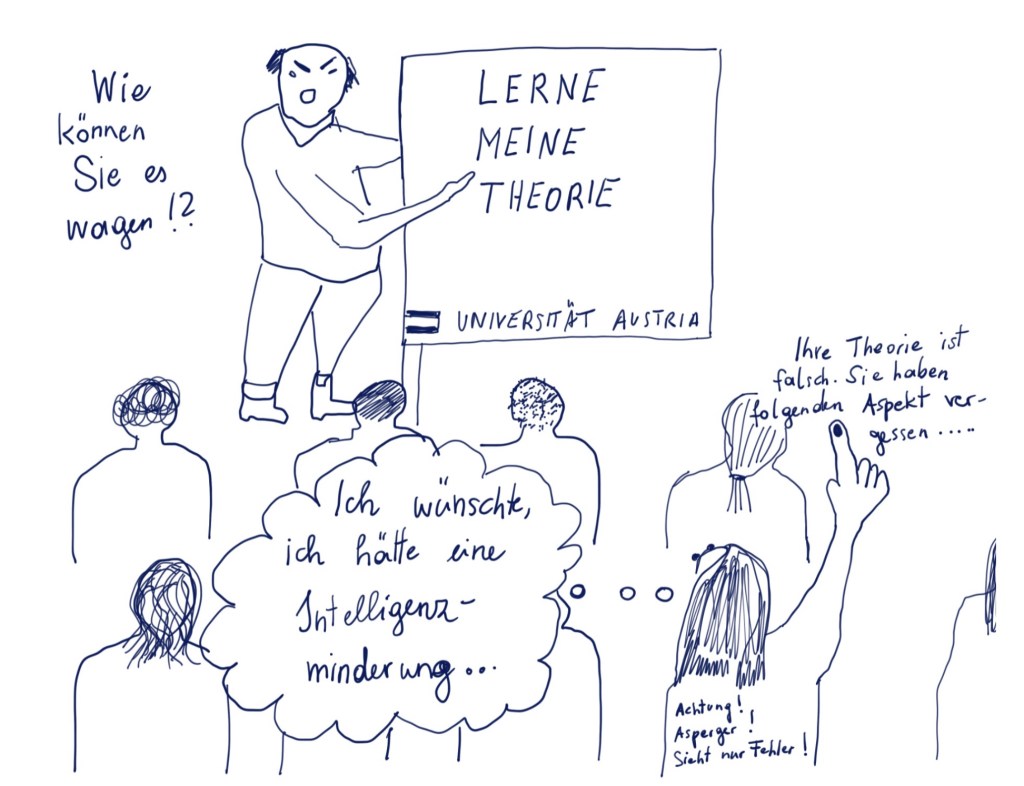 Wie
können
Sie es
wagen!?
LERNE
MEINE
THEORIE
UNIVERSITÄT AUSTRIA
Ihre Theorie ist
falsch. Sie haben
folgenden Aspekt ver-
gessen.....
Ich wünschte,
ich hätte eine
Intelligenz-
minderung...
Achtung!
Asperger!
Sieht nur Fehler!